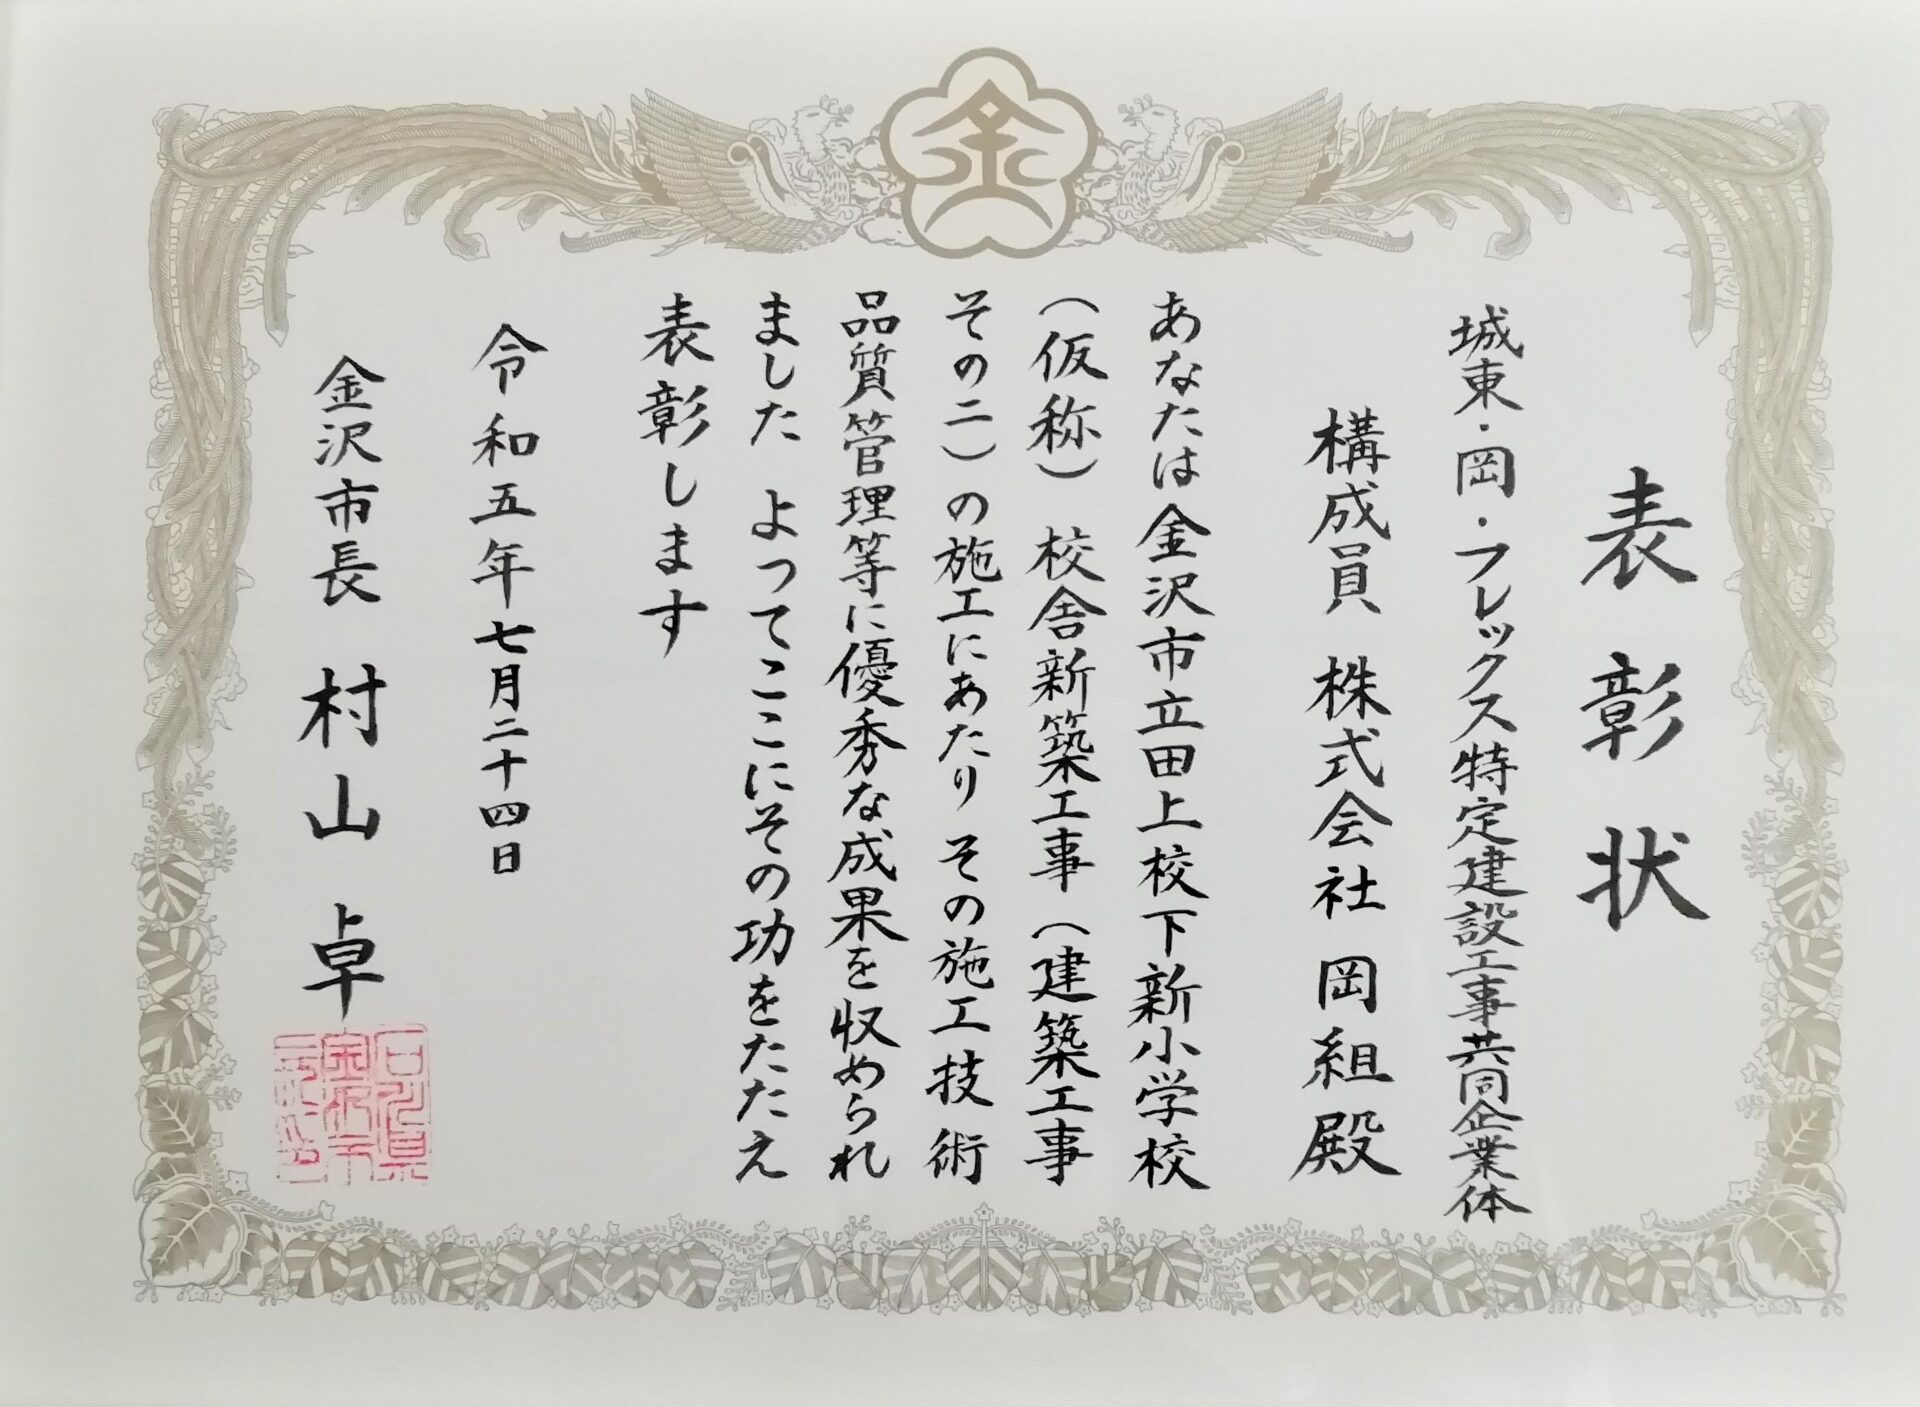 金
表彰状
城東・岡・フレックス特定建設工事共同企業体
構成員 株式会社 岡組殿
あなたは金沢市立田上校下新小学校
（仮称）校舎新築工事（建築工事
その二）の施工にあたり その施工技術
品質管理等に優秀な成果を収められ
ました よってここにその功をたたえ
表彰します
令和五年七月二十四日
金沢市長 村山 卓